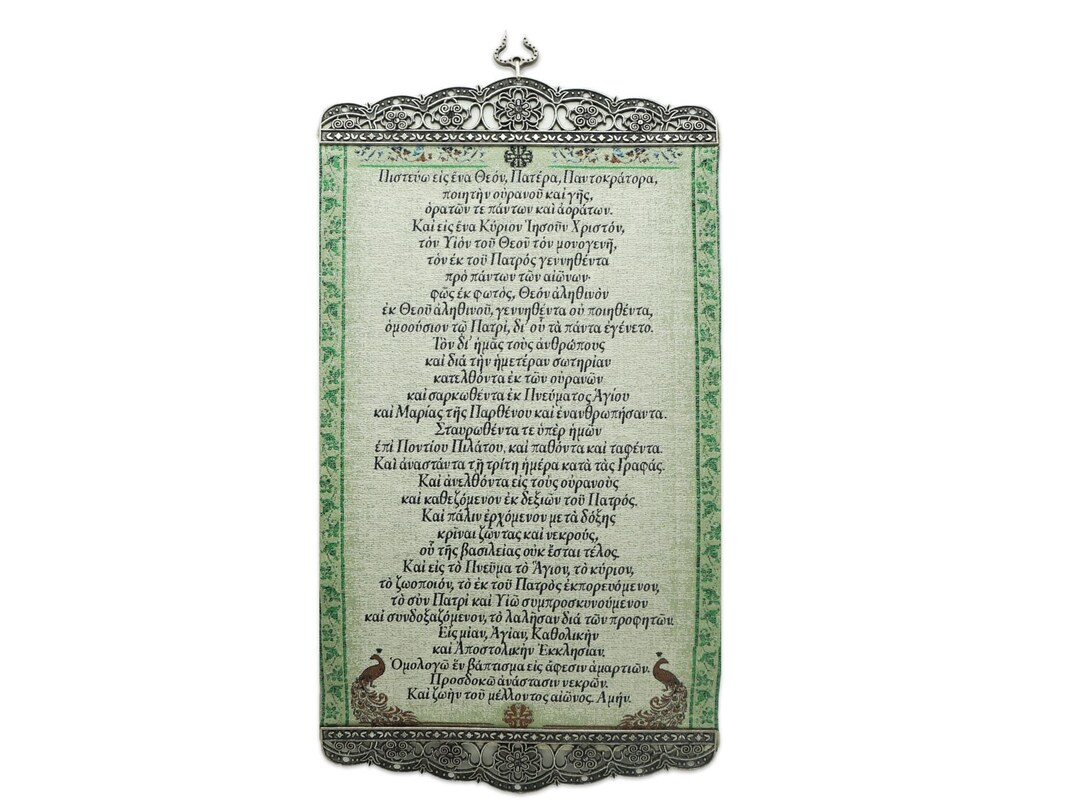 Πιστεύω εἰς ἕνα Θεόν, Πατέρα, Παντοκράτορα,
ποιητὴν οὐρανοῦ καὶ γῆς,
ὁρατῶν τε πάντων καὶ ἀοράτων.
Καὶ εἰς ἕνα Κύριον Ἰησοῦν Χριστόν,
τὸν Υἱὸν τοῦ Θεοῦ τὸν μονογενῆ,
τὸν ἐκ τοῦ Πατρός γεννηθέντα
πρὸ πάντων τῶν αἰώνων·
φῶς ἐκ φωτὸς, Θεόν ἀληθινὸν
ἐκ Θεοῦ ἀληθινοῦ, γεννηθέντα οὐ ποιηθέντα,
ὁμοούσιον τῷ Πατρὶ, δι' οὗ τὰ πάντα ἐγένετο.
Τὸν δι' ἡμᾶς τοὺς ἀνθρώπους
καὶ διά τὴν ἡμετέραν σωτηρίαν
κατελθόντα ἐκ τῶν οὐρανῶν
καὶ σαρκωθέντα ἐκ Πνεύματος Ἁγίου
καὶ Μαρίας τῆς Παρθένου καὶ ἐνανθρωπήσαντα.
Σταυρωθέντα τε ὑπὲρ ἡμῶν
ἐπὶ Ποντίου Πιλάτου, καὶ παθόντα καὶ ταφέντα.
Καὶ ἀναστάντα τῇ τρίτη ἡμέρα κατὰ τὰς Γραφάς.
Καὶ ἀνελθόντα εἰς τοὺς οὐρανοὺς
καὶ καθεζόμενον ἐκ δεξιῶν τοῦ Πατρός.
Καὶ πάλιν ἐρχόμενον μετὰ δόξης
κρῖναι ζῶντας καὶ νεκρούς,
οὗ τῆς βασιλείας οὐκ ἔσται τέλος.
Καὶ εἰς τὸ Πνεῦμα τὸ Ἅγιον, τὸ κύριον,
τὸ ζωοποιόν, τὸ ἐκ τοῦ Πατρὸς ἐκπορευόμενον,
τὸ σὺν Πατρὶ καὶ Υἱῷ συμπροσκυνούμενον
καὶ συνδοξαζόμενον, τὸ λαλῆσαν διά τῶν προφητῶν.
Εἰς μίαν, Ἁγίαν, Καθολικὴν
καὶ Ἀποστολικὴν Ἐκκλησίαν.
Ὁμολογῶ ἓν βάπτισμα εἰς ἄφεσιν ἁμαρτιῶν.
Προσδοκῶ ἀνάστασιν νεκρῶν.
Καὶ ζωὴν τοῦ μέλλοντος αἰῶνος. Αμήν.